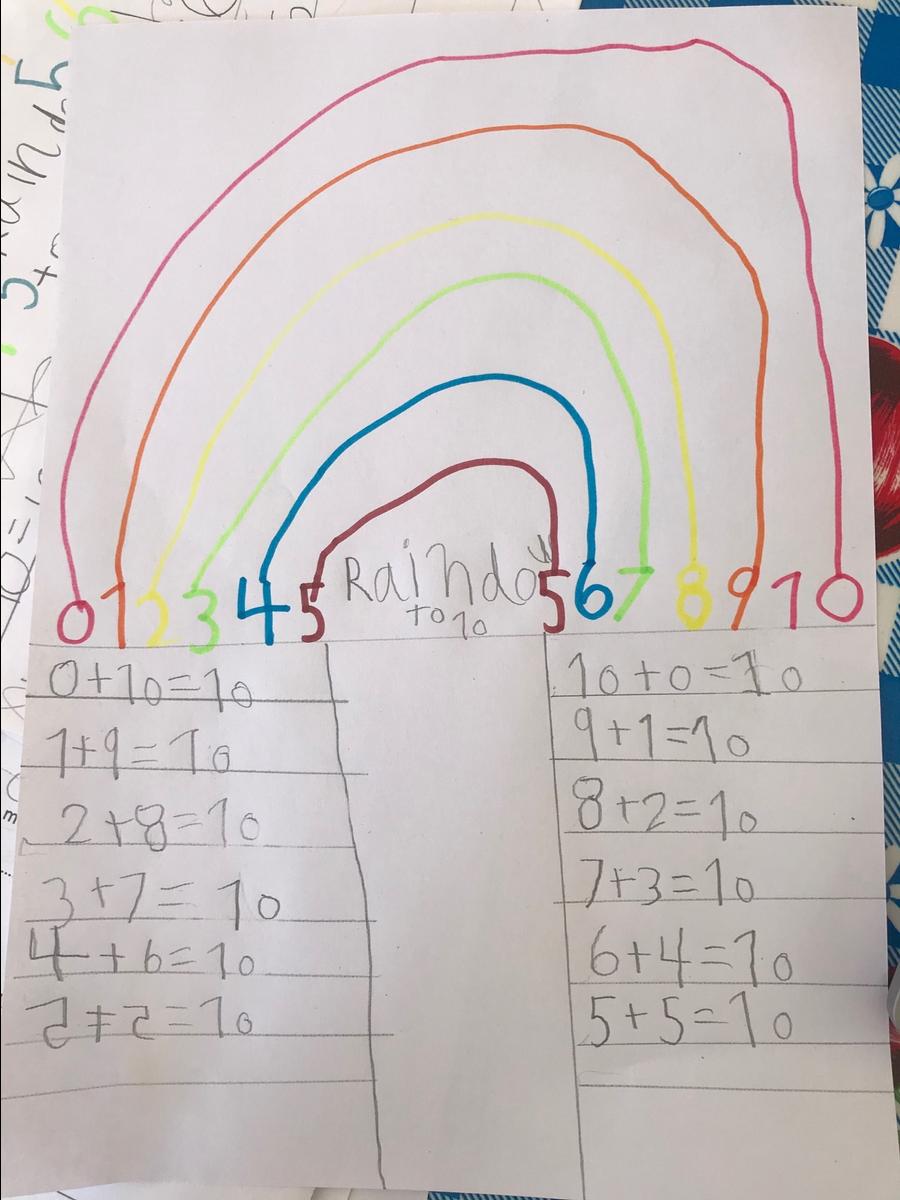 0 1 2 3 4 5 Raindow 5 6 7 8 9 10
to 10
0+10=10
1+9=10
2+8=10
3+7=10
4+6=10
5+5=10
10+0=10
9+1=10
8+2=10
7+3=10
6+4=10
5+5=10